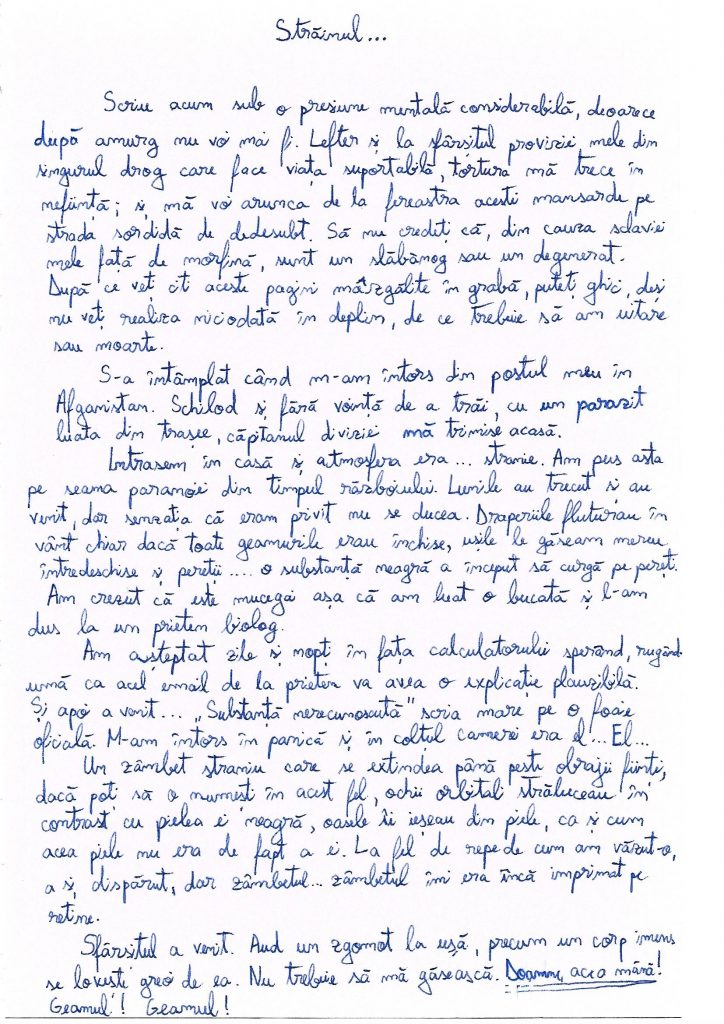 Străinul...
Scriu acum sub o presiune mentală considerabilă, deoarece
după amurg nu voi mai fi. Lefter și la sfârșitul proviziei mele din
singurul drog care face viața suportabilă, tortura mă trece în
neființă; și mă voi arunca de la fereastra acestii mansarde pe
strada sordidă de dedesubt. Să nu credeți că, din cauza sclaviei
mele față de morfină, sunt un slăbănog sau un degenerat.
După ce veți citi aceste pagini mâzgălite în grabă, puteți ghici, deși
nu veți realiza niciodată în deplin, de ce trebuie să am uitare
sau moarte.
S-a întâmplat când m-am întors din postul meu în
Afganistan. Schilod și fără voință de a trăi, cu un parazit
luata din trașee, căpitanul diviziei mă trimise acasă.
Intrasem în casă și atmosfera era... stranie. Am pus asta
pe seama paranoiei din timpul războiului. Lunile au trecut și au
venit, dar senzația că eram privit nu se ducea. Draperiile fluturau în
vânt chiar dacă toate geamurile erau închise, ușile le găseam mereu
întredeschise și pereții .... o substanță neagră a început să curgă pe pereți.
Am crezut că este mucegai așa că am luat o bucată și l-am
dus la un prieten biolog.
Am așteptat zile și nopți în fața calculatorului sperând, rugând
urmă ca acel email de la prieten va avea o explicație plauzibilă.
Și apoi a venit... „Substanță nerecunoscută" scria mare pe o foaie
oficială. M-am întors în panică și în colțul camerei era el... El...
Un zâmbet straniu care se extindea până peste obrajii ființei,
dacă poți să o numești în acest fel, ochii orbitali străluceau în
contrast cu pielea ei neagră, oasele îi ieseau din piele, ca și cum
acea piele nu era de fapt a ei. La fel de repede cum am văzut-o,
a și dispărut, dar zâmbetul... zâmbetul îmi era încă imprimat pe
retine.
Sfârșitul a venit. Aud un zgomot la ușă, precum un corp imens
se lovește greoi de ea. Nu trebuie să mă găsească. Doamne, acea mână!
Geamul! Geamul!